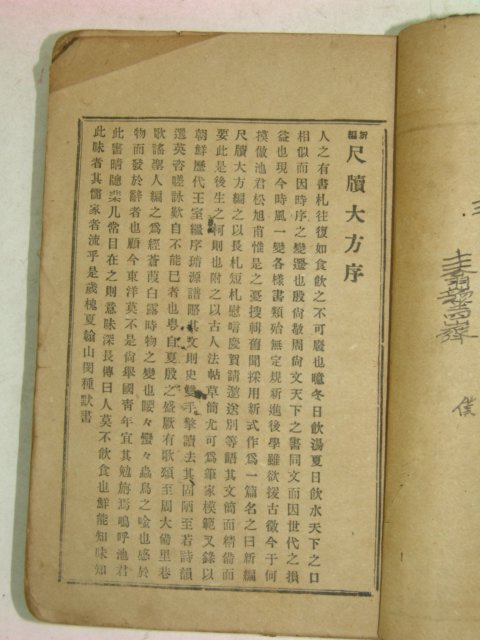 新編 尺牘大方序
人之有書札往復如食飮之不可廢也噫冬日飮湯夏日飮水天下之口
相似而因時序之變遷也殷尙敬周尙文天下之書同文而因世代之損
益也現今時風一變各樣書類殆無定規新進後學雖欲援古徵今于何
模倣池君松旭甫惟是之憂搜輯舊聞採用新式作爲一篇名之曰新編
尺牘大方編之以長札短札慰唁慶賀請邀送別等語其文簡而精備而
要此是後生之柯則也附之以古人法帖草簡尤可爲筆家模範又錄以
朝鮮歷代王室繼序璿源譜略其文則史雙手擎讀去其固陋至若詩韻
選英咨嗟詠歎自不能已者也粤自夏殷之盛厥有歌頌至周大備里巷
歌謠聖人編之爲經蒼葭白露時物之變也喓々蠻々蟲鳥之喩也感於
物而發於辭者也顧今東洋莫不是尙擧國靑年宜其勉旃焉嗚呼池君
此書暗隨槊几常目在之則意味深長傳曰人莫不飮食也鮮能知味知
此味者其儒家者流乎是歲槐夏翰山閔種默書